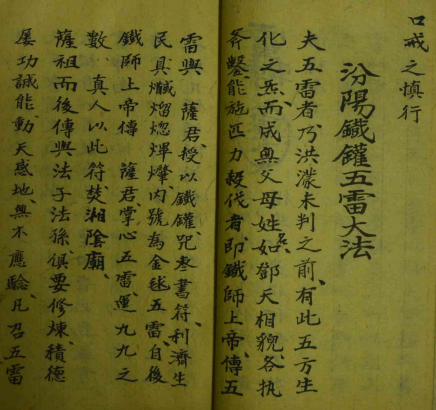 口戒之慎行
汾陽鐵鑵五雷大法
夫五雷者乃洪濛未判之前有此五方生
化之炁而成與父母姓如鄧天相貌各執
斧鑿能施匹力殺伐者即鐵師上帝傳五
雷與薩君授以鐵鑵咒叁書符利濟生
民具熾熘熄煇爗內號為金毬五雷自後
鐵師上帝傳薩君掌心五雷運九九之
數真人以此符焚湘陰廟
薩祖而後傳與法子法孫俱要修煉積德
屢功誠能動天感地無不應驗凡召五雷